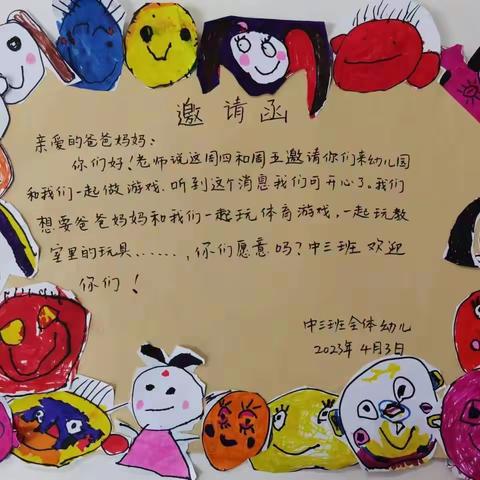 邀请函
亲爱的爸爸妈妈：
你们好！老师说这周四和周五邀请你们来幼儿园
和我们一起做游戏.听到这个消息我们可开心了。我们
想要爸爸妈妈和我们一起玩体育游戏，一起玩教
室里的玩具……，你们愿意吗？中三班欢迎
你们！
中三班全体幼儿
2023年4月3日